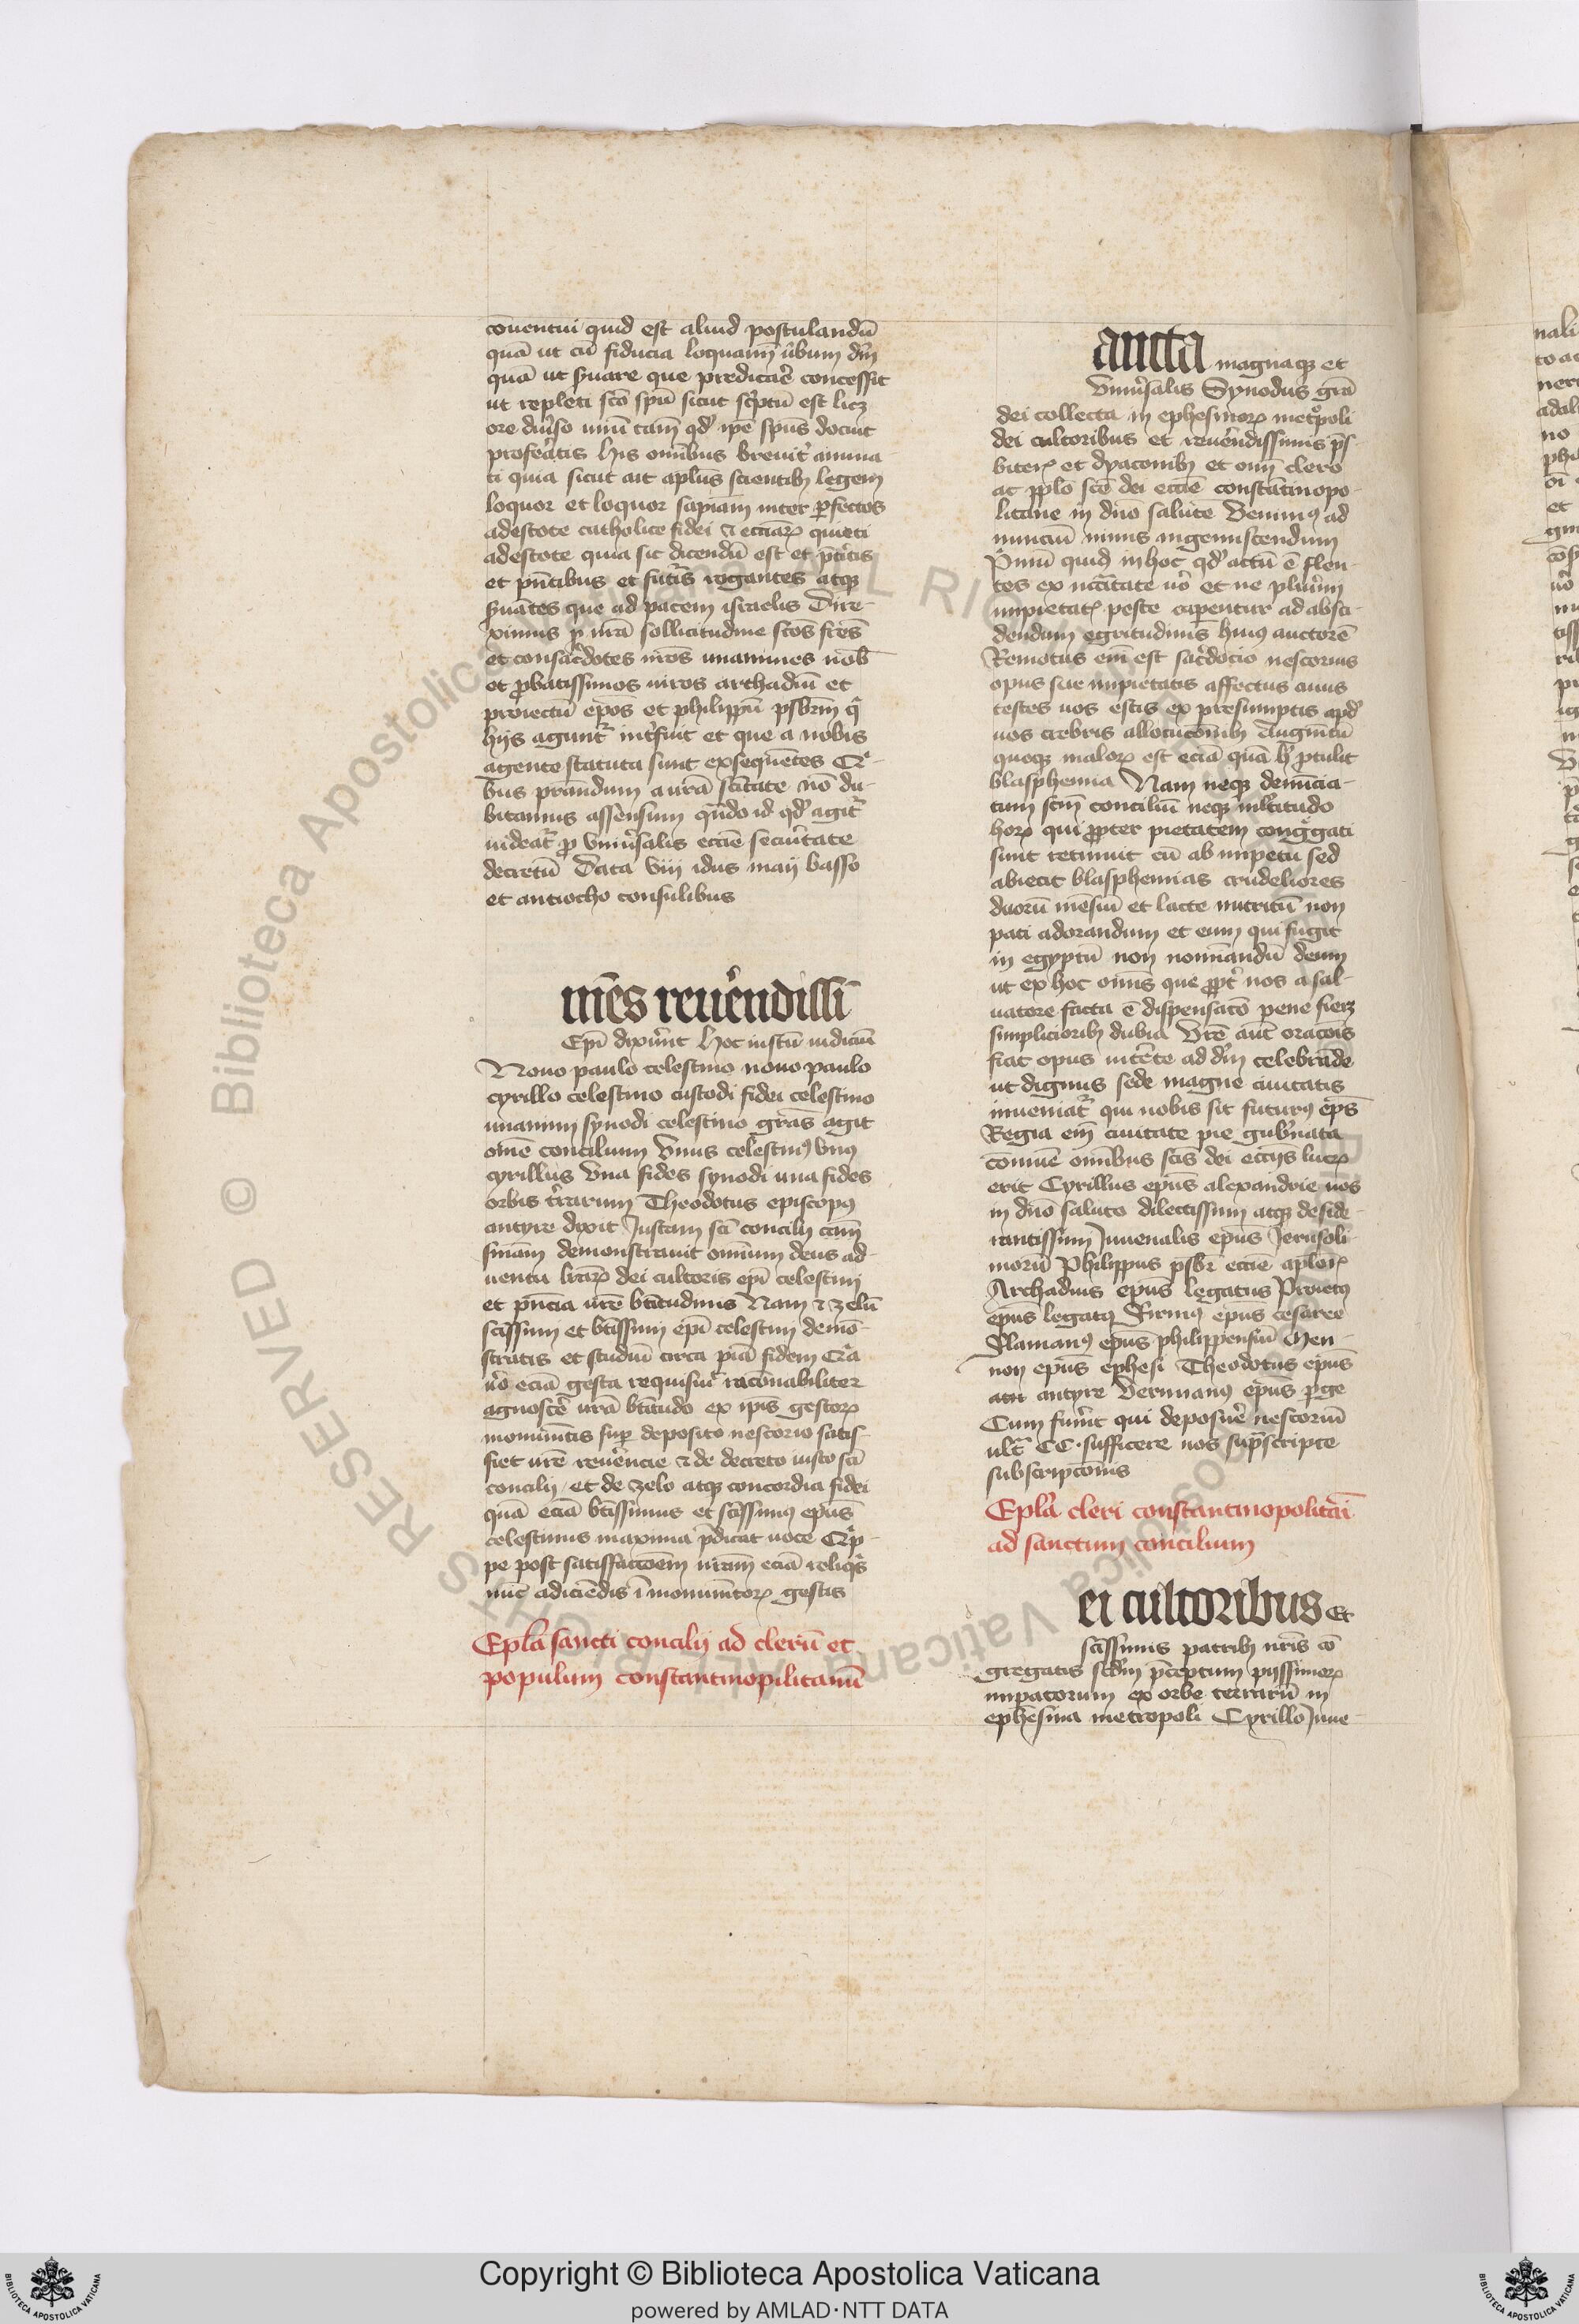 cōuentui quid est aliud postulandū
quā ut cū fiducia loquam̄ ūbum dn̄i
quā ut suare que predicar̄e concessit
ut repleti sc̄o spū sicut sc̓ptū est licꝫ
ore diūso unū tam̄ qd̓ ip̄e spūs docuit
profeātis his om̄ibus breuit̓ anima
ti quia sicut ait apl̄us scientibꝫ legem
loquor et loquor sapiam̄ inter ꝑfectos
adestote catholice fidei ⁊ eccīaꝝ quieti
adestote quia sic dicendū est et pt̄itis
et pn̄tibus et futur̓is rogantes atqꝫ
suātes que ad pacem israelis Dire-
ximus ꝑ nr̄a sollicitudine scōs frēs
et consac̓dotes nr̄os unanimes nob̄
et ꝓbatissimos uiros archadiū et
proiectū ep̄os et philippū psbr̄m q̓
hijs agunt̓ int̓fuit et que a nobis
agente statuta sunt exsequētes Q̓-
bus prn̄andum a ur̄a scītate nō du-
bitamus assensum qn̄do id qd̓ agit̓
uideat̓ ꝓ uniūsalis eccīe secur̓itate
decretū Data viij idus maij basso
et antiocho consulibus
mēs reuēndissī
Ep̄i dixer̓nt hoc iustū iudiciū
Nouo paulo celestino nouo paulo
cyrillo celestino custodi fidei celestino
unanimi synodi celestino grās agit
omē concilium Unus celestinꝰ unꝰ
cyrillus Una fides synodi una fides
orbis t̓rarum Theodotus episcopꝰ
antyre dyxit Justam scī concilij eam̄
sniam demonstrauit omnium deus ad-
uentu lr̄aꝝ dei cultoris ep̄i celestini
et pn̄cia ur̄e btītudinis Nam ⁊ zelū
scissimi et btīssimi ep̄i celestini demō-
stratis et studiū circa piā fidem Q̓a
ūo eciā gesta requisiuit racōnabiliter
agnoscēt ur̄a btītudo ex ip̄is gestoꝝ
monumētis suꝑ deposito nestorio satis-
fiet ur̄e reuēncie ⁊ de decreto iusto scī
concilij et de zelo atqꝫ concordia fidei
quā eciā btīssimus et scīssimꝰ ep̄us
celestinus maxima p̄dicat uoce Q̓p-
pe post satisfactōem ur̄am eciā reliq̓s
nūc adiciēdis ī monumētoꝝ gestis
Epl̄a sancti concilij ad clerū et
populum constantinopilitanū
ancta magnaqꝫ et
Uniūsalis Synodus grā
dei collecta in ephesinoꝝ met̓poli
dei cultoribus et reuēndissimis p̄s-
biteꝝ et dyaconibꝫ et om̄i clero
ac pp̄lo scē dei eccīe constātinopo-
litane in dn̄o salute Venimꝰ ad
nunciū nimis ingemiscendum
P̓mū quid in hoc qd̓ actū ē flen-
tes ex nc̄citate ūo et ne pluūim
impietatꝭ peste caperentur ad absci-
dendum egritudinis huiꝰ auctorē
Remotus em̄ est sac̓docio nestorius
opus sue impietatis affectus cuius
testes uos estis ex presumptis apd̓
uos crebris allocucōnibꝫ Augmētū
queqꝫ maloꝝ est eciā quā hꝰ ꝑtulit
blasphemia Nam neqꝫ denūcia-
tum scm̄ conciliū neqꝫ ml̓titudo
hoꝝ qui ꝓpter pietatem congͣgati
sunt retinuit eū ab impetu sed
abiecit blasphemias crudeliores
duorū mēsiū et lacte nutritū non
pati adorandum et eum qui fugit
in egyptū non nomīandū deum
ut ex hoc omīs que ꝓpt̓ nos a sal-
uatore facta ē dispensacō pene fieꝫ
simplicioribꝫ dubia Ur̄e aut̄ oracōis
fiat opus intēte ad dn̄m celebrāde
ut dignus sede magne ciuitatis
inueniat̓ qui nobis sit futurꝰ ep̄s
Regia em̄ ciuitate pie gub̓nata
cōmune omībus scīs dei eccijs lucꝝ
erit Cyrillus ep̄us alexandrie uos
in dn̄o saluto dilectissimi atqꝫ deside-
rantissimi Juuenalis ep̄us Jerusoli-
morū Philippus psbr̄ eccīe apl̄oꝝ
Archadius ep̄us legatus Proiectꝰ
ep̄us legatꝰ Firmꝰ ep̄us cesaree
Flamianꝰ ep̄us philippensiū Men-
non ep̄us ephesi Theodotus ep̄us
antyre Berimianꝰ ep̄us ꝑge
Cum fuer̓nt qui deposuer̄ nestoriū
ult̓ CC · sufficere nos supͣscripte
subscripcōnis
Epl̄a cleri constantinopolitāi
ad sanctum concilium
ei cultoribus Et
scīssimis patribꝫ nr̄is cō
gregatis scd̄m p̄ceptum pijssimoꝝ
impatorum ex orbe terrarū in
ephesina metropoli Cyrillo Juue-
Copyright © Biblioteca Apostolica Vaticana
powered by AMLAD·NTT DATA